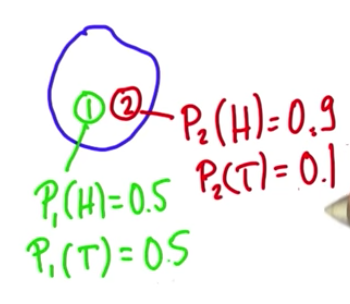 ① ②
P₂(H)=0.9
P₂(T)=0.1
P₁(H)=0.5
P₁(T)=0.5